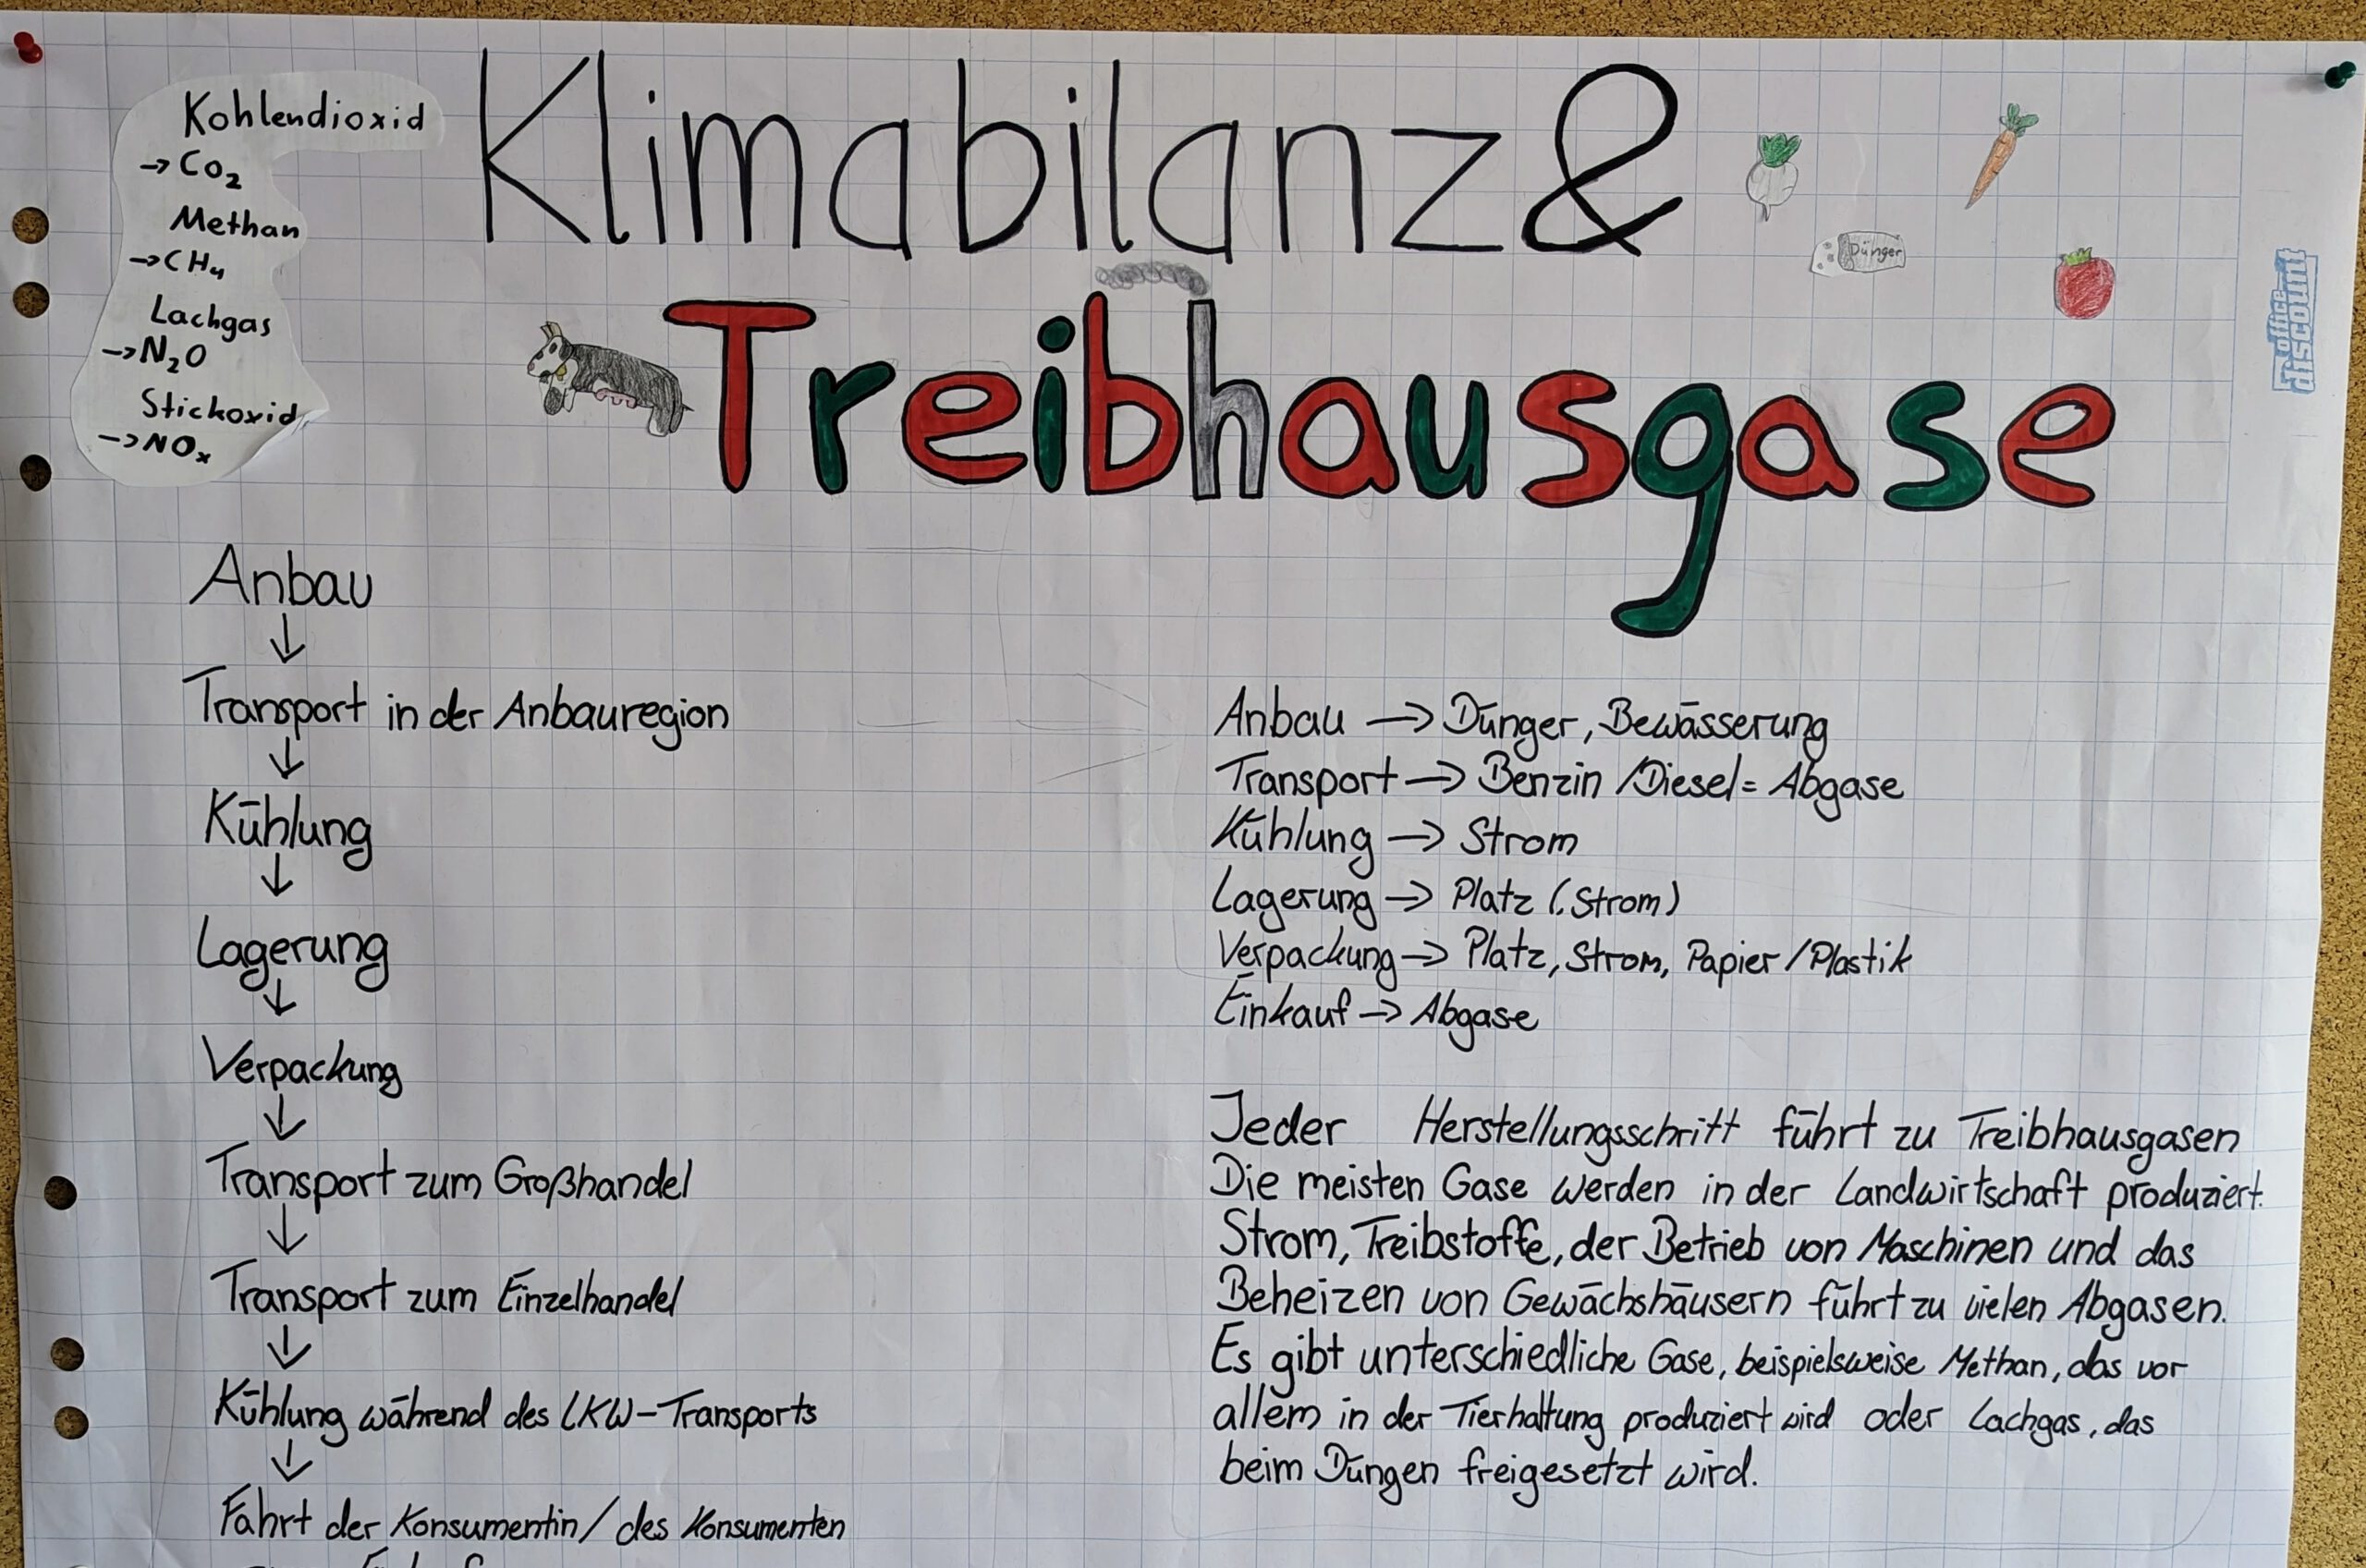 Kohlendioxid
→ Co₂
Methan
→ CH₄
Lachgas
→ N₂O
Stickoxid
→ NOₓ
Klimabilanz &
Treibhausgase
Dünger
office
discount
Anbau
↓
Transport in der Anbauregion
↓
Kühlung
↓
Lagerung
↓
Verpackung
↓
Transport zum Großhandel
↓
Transport zum Einzelhandel
↓
Kühlung während des LKW-Transports
↓
Fahrt der Konsumentin/des Konsumenten
Anbau → Dünger, Bewässerung
Transport → Benzin /Diesel = Abgase
Kühlung → Strom
Lagerung → Platz (Strom)
Verpackung → Platz, Strom, Papier/Plastik
Einkauf → Abgase
Jeder Herstellungsschritt führt zu Treibhausgasen
Die meisten Gase werden in der Landwirtschaft produziert.
Strom, Treibstoffe, der Betrieb von Maschinen und das
Beheizen von Gewächshäusern führt zu vielen Abgasen.
Es gibt unterschiedliche Gase, beispielsweise Methan, das vor
allem in der Tierhaltung produziert wird oder Lachgas, das
beim Düngen freigesetzt wird.